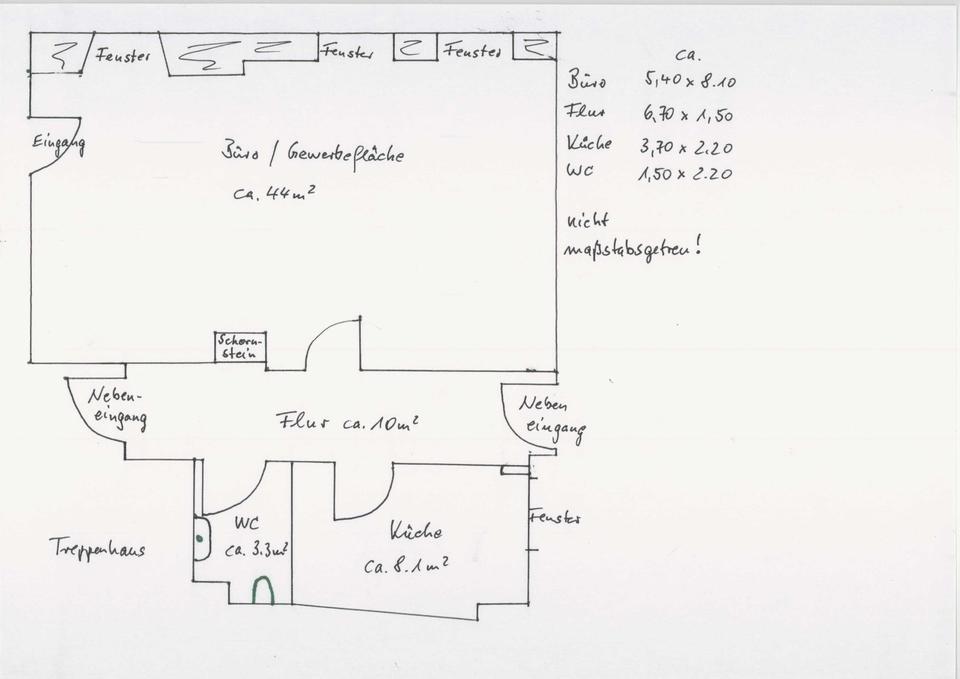 Fenster
Fenster
Fenster
ca.
Büro 5,40 x 8.10
Flur 6,70 x 1,50
Küche 3,70 x 2.20
WC 1,50 x 2.20
nicht
maßstabsgetreu!
Eingang
Büro / Gewerbefläche
ca. 44 m²
Schorn-
stein
Neben-
eingang
Flur ca. 10 m²
Neben
eingang
WC
ca. 3.3 m²
Küche
ca. 8.1 m²
Fenster
Treppenhaus